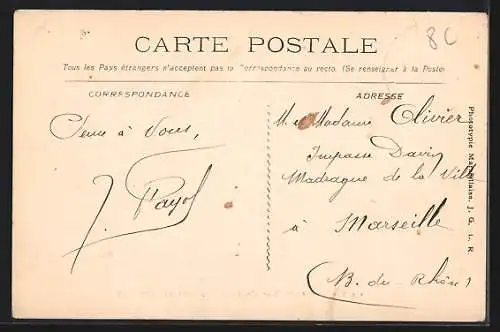 8C
CARTE POSTALE
Tous les Pays étrangers n'acceptent pas la Correspondance au recto. (Se renseigner à la Poste)
CORRESPONDANCE
à Vous,
J. Payol
ADRESSE
M et Madame Olivier
Impasse David
Madrague de la Ville
à Marseille
(B. du Rhône)
Phototypie Marseillaise, J. G. L. R.